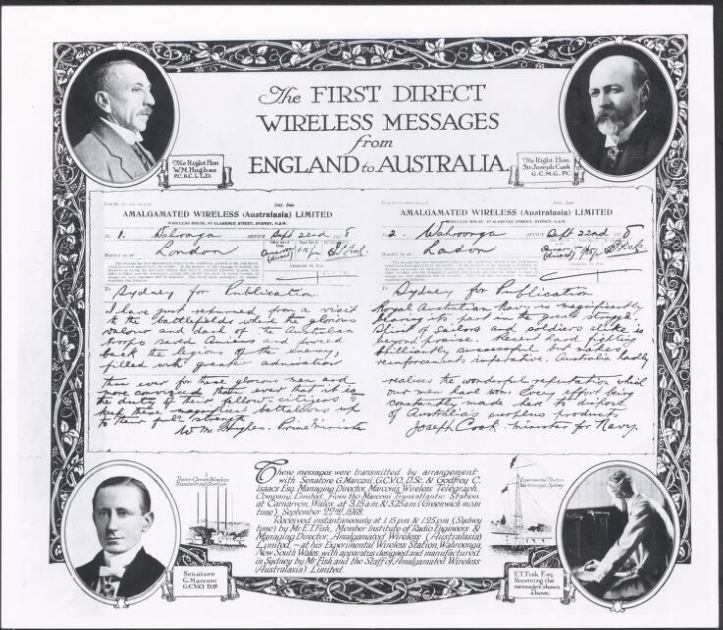 The FIRST DIRECT
WIRELESS MESSAGES
from
ENGLAND to AUSTRALIA.
The Right Hon.
W.M. Hughes
P.C. K.C. L.L.D.
The Right Hon.
Sir Joseph Cook
G.C.M.G., P.C.
AMALGAMATED WIRELESS (Australasia) LIMITED
WIRELESS HOUSE, 97 CLARENCE STREET, SYDNEY, N.S.W.
1. Wahroonga OFFICE Sept 22nd 1918
London
To Sydney for Publication
I have just returned from a visit
to the battlefields where the glorious
valour and dash of the Australian
troops saved Amiens and forced
back the legions of the enemy,
filled with greater admiration
than ever for these glorious men and
more convinced than ever that it is
the duty of their fellow-citizens to
keep these magnificent battalions up
to their full strength.
W M Hughes. Prime Minister
AMALGAMATED WIRELESS (Australasia) LIMITED
WIRELESS HOUSE, 97 CLARENCE STREET, SYDNEY, N.S.W.
2. Wahroonga OFFICE Sept 22nd
London
To Sydney for Publication
Royal Australian Navy is magnificently
bearing its part in the great struggle.
Spirit of sailors and soldiers alike is
beyond praise. Recent hard fighting
brilliantly successful but makes
reinforcements imperative. Australia hardly
realises the wonderful reputation which
our men have won. Every effort being
constantly made here to dispose
of Australia's surplus products
Joseph Cook. Minister for Navy.
These messages were transmitted by arrangement
with Senatore G. Marconi, G.C.V.O., D.Sc. & Godfrey C.
Isaacs Esq. Managing Director, Marconi's Wireless Telegraph
Company, Limited, from the Marconi Transatlantic Station,
at Carnarvon, Wales, at 3.15 a.m. & 3.25 a.m. (Greenwich mean
time) September 22nd, 1918.
Received instantaneously at 1.15 p.m. & 1.25 p.m. (Sydney
time) by Mr. E.T. Fisk, (Member Institute of Radio Engineers &
Managing Director, Amalgamated Wireless (Australasia)
Limited,—at his Experimental Wireless Station, Wahroonga,
New South Wales, with apparatus designed and manufactured
in Sydney by Mr Fisk and the Staff of Amalgamated Wireless
(Australasia) Limited.
Senatore
G. Marconi
G.C.V.O. D.Sc
E.T. Fisk Esq.
Receiving the
messages shown
above.